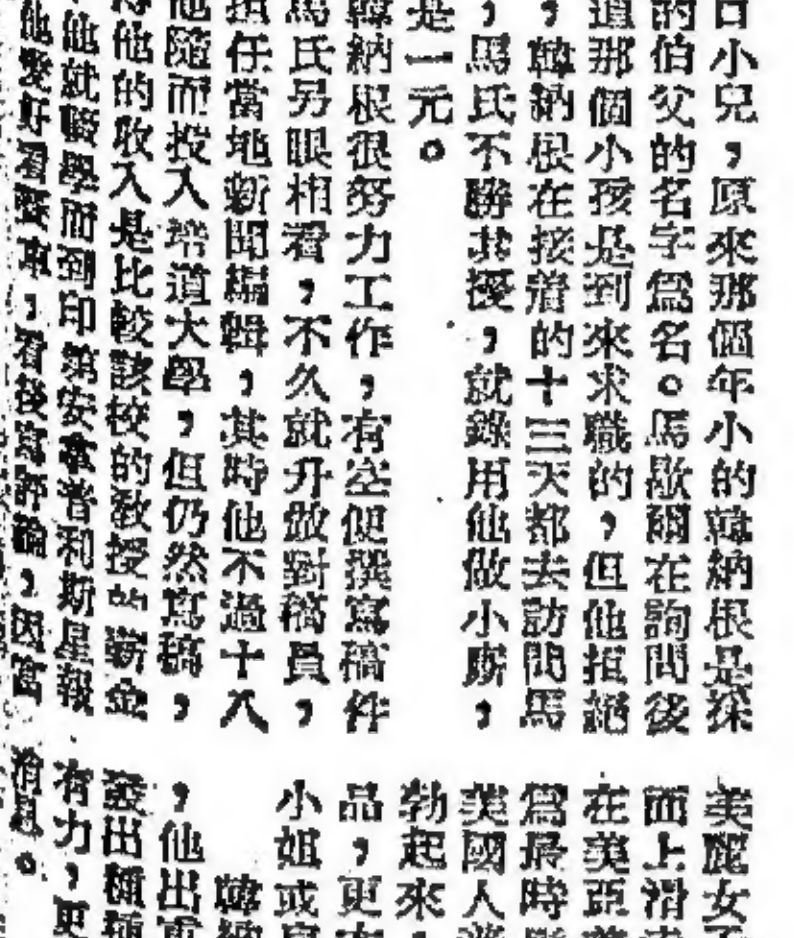 小兒，原來那個年小的韓納根是採
的伯父的名字爲名。馬歇爾在詢問後
道那個小孩是到來求職的，但他拒絕
，韓納根在接着的十三天都去訪問馬
，馬氏不勝其擾，就錄用他做小廝，
是一元。
韓納根很努力工作，有空便撰寫稿件
馬氏另眼相看，不久就升做對稿員，
担任當地新聞編輯，其時他不過十八
他隨而投入 道大學，但仍然寫稿，
他的收入是比較該校的教授的薪金
他就 學而到印第安拿普利斯星報
他愛好看 ，看後寫評論，因
美麗女
面上滑
在美亞
爲最時
美國人
勃起來
品，更
小姐或
韓納
，他出
發出種種
有力，更
消息。